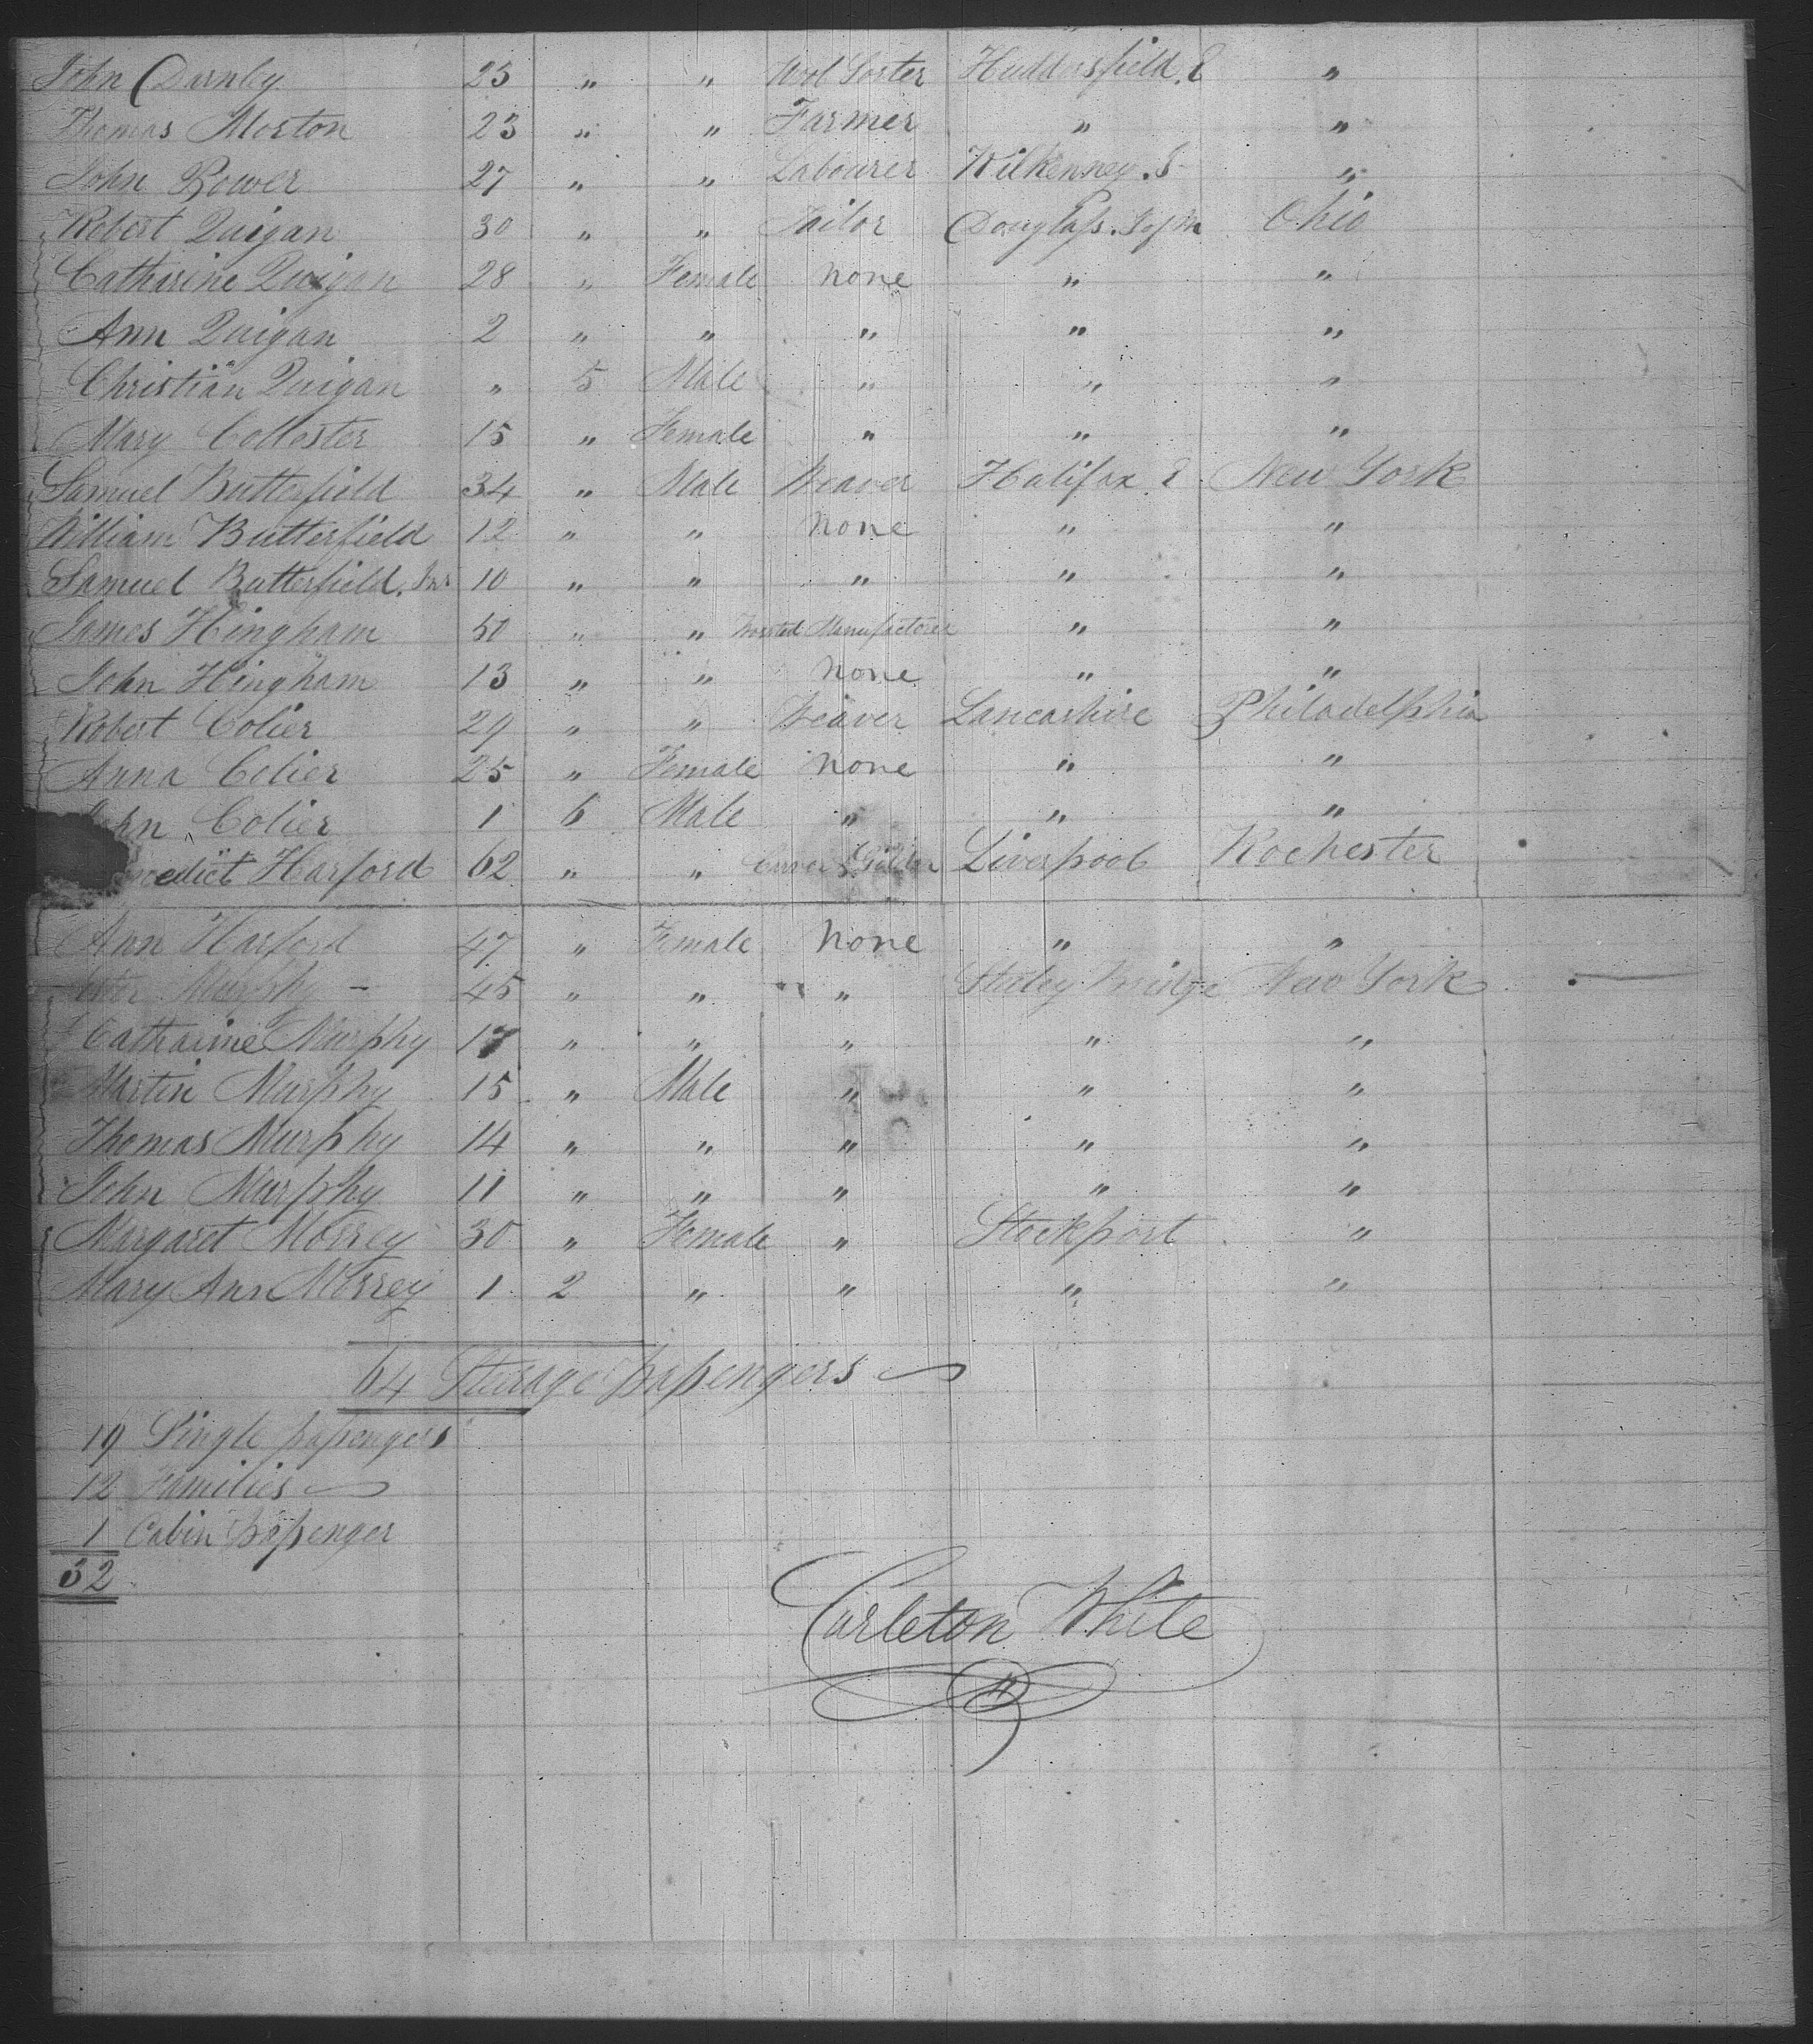 John Darnley 23 " " Wool Sorter Huddersfield. E "
Thomas Morton 23 " " Farmer " "
John Power 27 " " Labourer Kilkenney. I "
Robert Quigan 30 " " Tailor Douglass. I of M Ohio
Catharine Quigan 28 " Female none " "
Ann Quigan 2 " " " " "
Christian Quigan " 5 Male " " "
Mary Collester 15 " Female " " "
Samuel Butterfield 34 " Male Weaver Halifax E New York
William Butterfield 12 " " none " "
Samuel Butterfield. Jnr 10 " " " " "
James Hingham 50 " " Worsted Manufacturer " "
John Hingham 13 " " none " "
Robert Colier 29 " " Weaver Lancashire Philadelphia
Anna Colier 25 " Female none " "
John Colier 1 6 Male " " "
nedict Harford 62 " " Carver & Gilder Liverpool Rochester
Ann Harford 47 " Female none " "
Murphy - 45 " " " Staley Bridge New York
Catharine Murphy 17 " " " " "
Martin Murphy 15 " Male " " "
Thomas Murphy 14 " " " " "
John Murphy 11 " " " " "
Margaret Morrey 30 " Female " Stockport "
Mary Ann Morrey 1 2 " " " "
64 Steerage passengers
19 Single passengers
12 Families
1 Cabin passenger
32
Carleton White